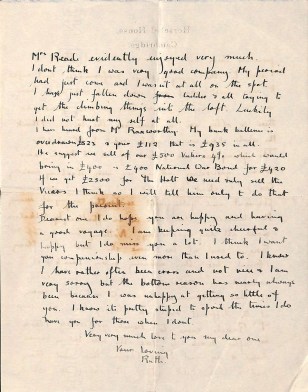 Mrs Reade evidently enjoyed very much.
I don't think I was very good company. My period
had just come and I was not at all on the spot.
I had just fallen down from ladder & all trying to
get the climbing things into the loft. Luckily
I did not hurt my self at all.
I have heard from Mr The bank balance is
overdrawn £23 & your £112 that is £935 in all.
He suggests we sell of our £500 Vickers 4% which would
bring in £400 & £400 National War Bond for £420
If we get £2500 for The Holt we need only sell the
Vickers I think so I will tell him only to do that
for the present.
Dearest one I do hope you are happy and having
a good voyage. I am keeping quite cheerful &
happy but I do miss you a lot. I think I want
your companionship even more than I used to. I know
I have rather often been cross and not nice & I am
very sorry but the bottom reason has nearly always
been because I was unhappy at getting so little of
you. I know it's pretty stupid to spoil the times I do
have you for those when I don't.
Very very much love to you my dear one.
Your loving
Ruth